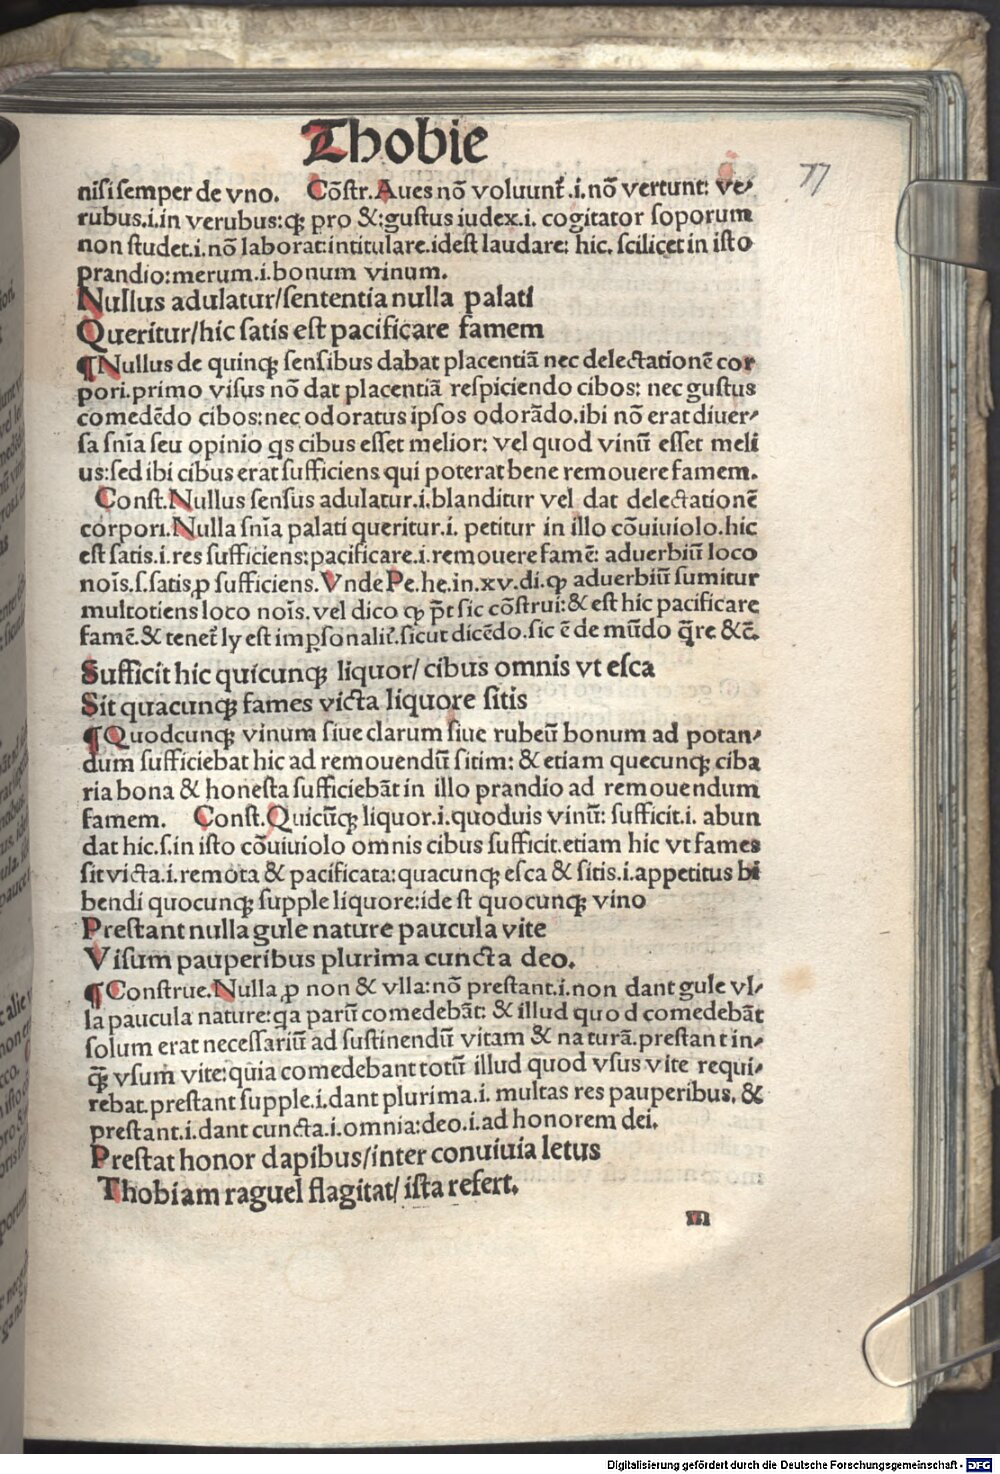 Thobie
77
nisi semper de vno. Cõstr. Aues nõ voluunt̃ .i. nõ vertunt: ve⸗
rubus .i. in verubus: qꝫ pro &: gustus iudex .i. cogitator soporum
non studet .i. nõ laborat: intitulare. idest laudare: hic. scilicet in isto
prandio: merum .i. bonum vinum.
Nullus adulatur/ sententia nulla palati
Queritur/ hic satis est pacificare famem
¶ Nullus de quinqꝫ sensibus dabat placentiã nec delectationẽ cor
pori. primo visus nõ dat placentiã respiciendo cibos: nec gustus
comedẽdo cibos: nec odoratus ipsos odorãdo. ibi nõ erat diuer⸗
sa sñia seu opinio qs cibus esset melior: vel quod vinũ esset meli
us: sed ibi cibus erat sufficiens qui poterat bene remouere famem.
Const. Nullus sensus adulatur .i. blanditur vel dat delectationẽ
corpori. Nulla sñia palati queritur .i. petitur in illo cõuiuiolo. hic
est satis .i. res sufficiens: pacificare .i. remouere famẽ: aduerbiũ loco
nois̃ .s. satis ꝓ sufficiens. Vnde Pe. he. in. xv. di. ꝙ aduerbiũ sumitur
multotiens loco nois̃. vel dico ꝙ p̃t sic cõstrui: & est hic pacificare
famẽ. & tenet̃ ly est imꝑsonalit̃. sicut dicẽdo. sic ẽ de mũdo q̃re &c̃.
Sufficit hic quicunqꝫ liquor/ cibus omnis vt esca
Sit quacunqꝫ fames victa liquore sitis
¶ Quodcunqꝫ vinum siue clarum siue rubeũ bonum ad potan⸗
dum sufficiebat hic ad remouendũ sitim: & etiam quecunqꝫ ciba
ria bona & honesta sufficiebãt in illo prandio ad remouendum
famem. Const. Quicũqꝫ liquor .i. quoduis vinũ: sufficit .i. abun
dat hic .s. in isto cõuiuiolo omnis cibus sufficit. etiam hic vt fames
sit victa .i. remota & pacificata: quacunqꝫ esca & sitis .i. appetitus bi
bendi quocunqꝫ supple liquore: idest quocunqꝫ vino
Prestant nulla gule nature paucula vite
Visum pauperibus plurima cuncta deo.
¶ Construe. Nulla ꝓ non & vlla: nõ prestant .i. non dant gule vl⸗
la paucula nature: qa parũ comedebãt: & illud quod comedebãt
solum erat necessariũ ad sustinendũ vitam & naturã. prestant in⸗
q̃ꝫ vsum vite: quia comedebant totũ illud quod vsus vite requi⸗
rebat. prestant supple .i. dant plurima .i. multas res pauperibus. &
prestant .i. dant cuncta .i. omnia: deo .i. ad honorem dei.
Prestat honor dapibus/ inter conuiuia letus
Thobiam raguel flagitat/ ista refert.
Digitalisierung gefördert durch die Deutsche Forschungsgemeinschaft - DFG